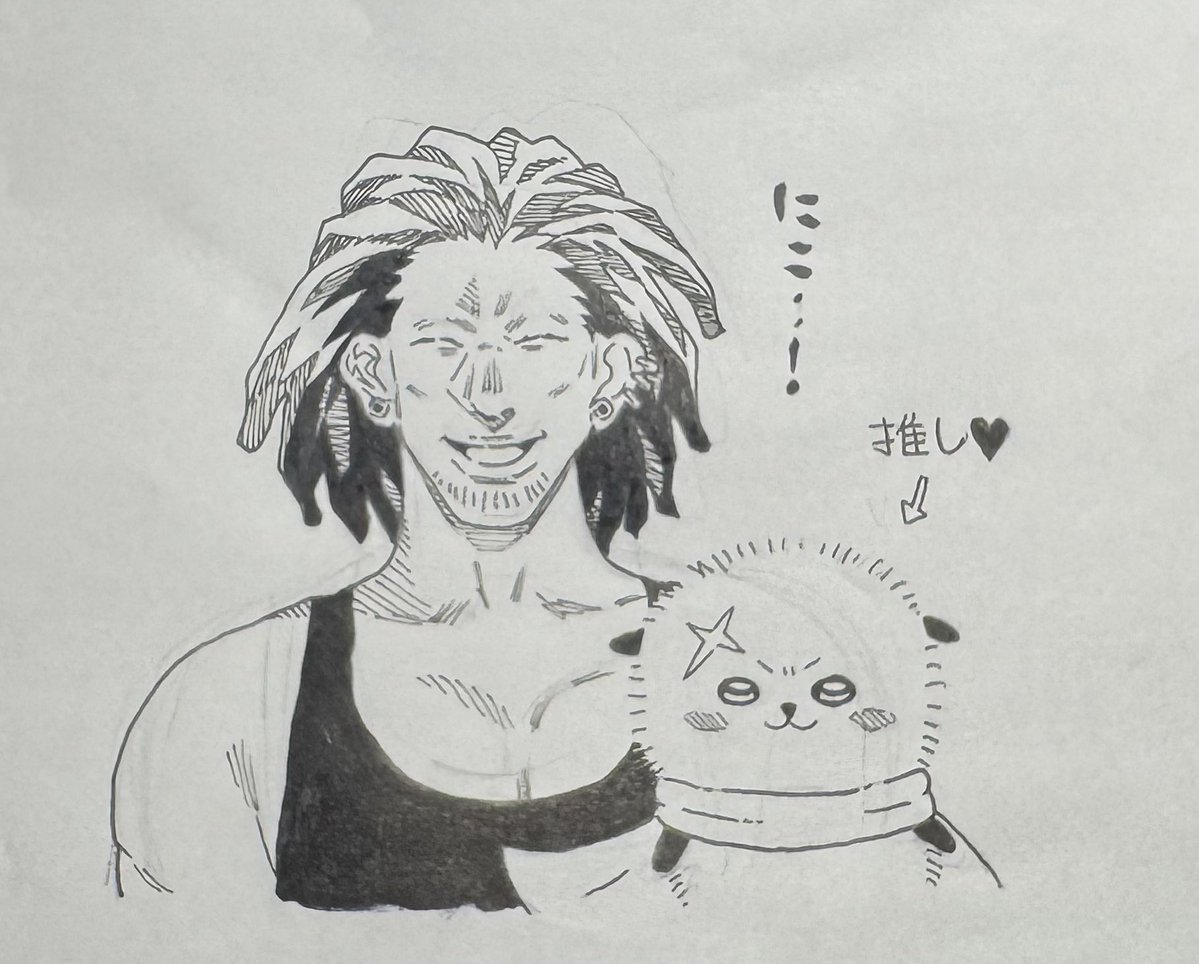 にこ・・!
推し♥